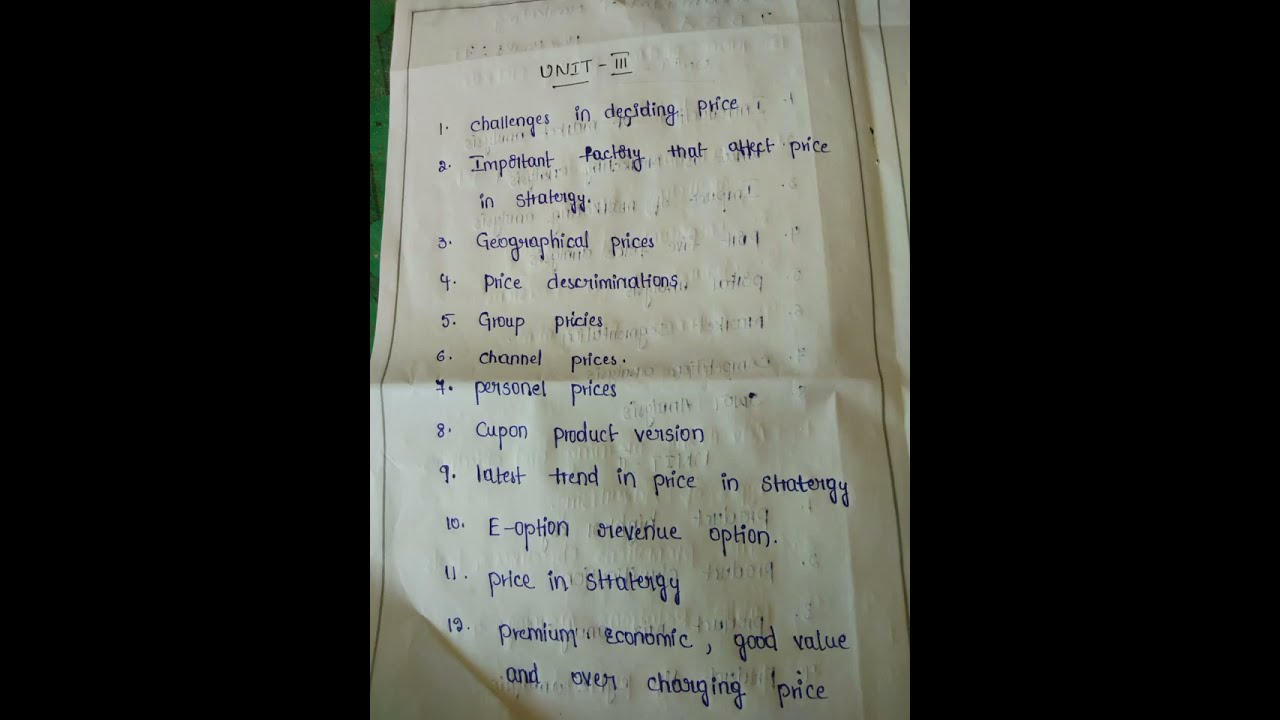 UNIT - III
1. challenges in deciding price
2. Important factory that affect price
in stratergy.
3. Geographical prices
4. price descriminations.
5. Group pricies
6. channel prices.
7. personel prices
8. Cupon product version
9. latest trend in price in stratergy
10. E-option revenue option.
11. price in stratergy
12. premium economic, good value
and over charging price